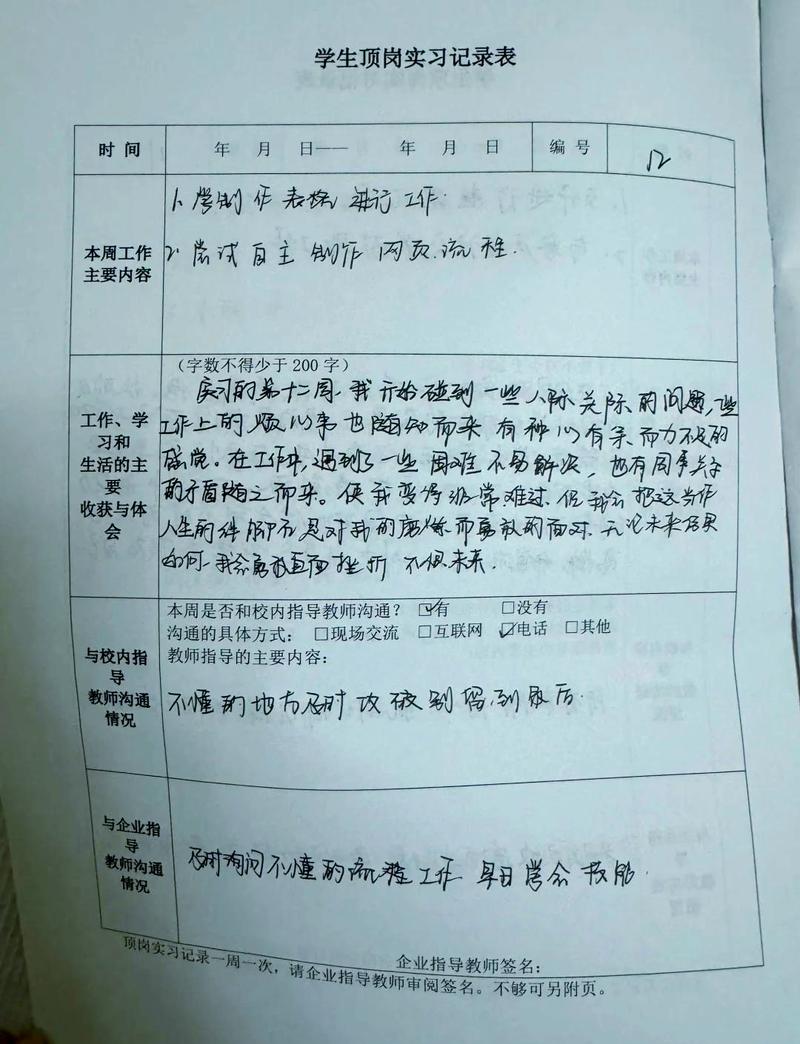 学生顶岗实习记录表
时 间
年 月 日—— 年 月 日
编 号
12
本周工作
主要内容
1. 学制作表格进行工作.
2. 尝试自主制作网页.流程.
工作、学
习和
生活的主
要
收获与体
会
（字数不得少于 200 字）
实习的第十二周,我开始碰到一些人际关际的问题,一些
工作上的烦心事也随知而来 有种心有余而力不足的
感觉。在工作中,遇到了一些困难不易解决,也有同事关系
的矛盾随之而来。使我变得非常难过,但我会把这当作
人生的绊脚石是对我的磨炼而勇敢的面对.无论未来结果
如何,我会勇敢直面挫折 不惧未来.
与校内指
导
教师沟通
情况
本周是否和校内指导教师沟通？ ☑有 □没有
沟通的具体方式： □现场交流 □互联网 ☑电话 □其他
教师指导的主要内容：
不懂的地方及时攻破别留到最后.
与企业指
导
教师沟通
情况
及时询问不懂的流程工作 早日学会技能.
企业指导教师签名：
顶岗实习记录一周一次，请企业指导教师审阅签名。不够可另附页。